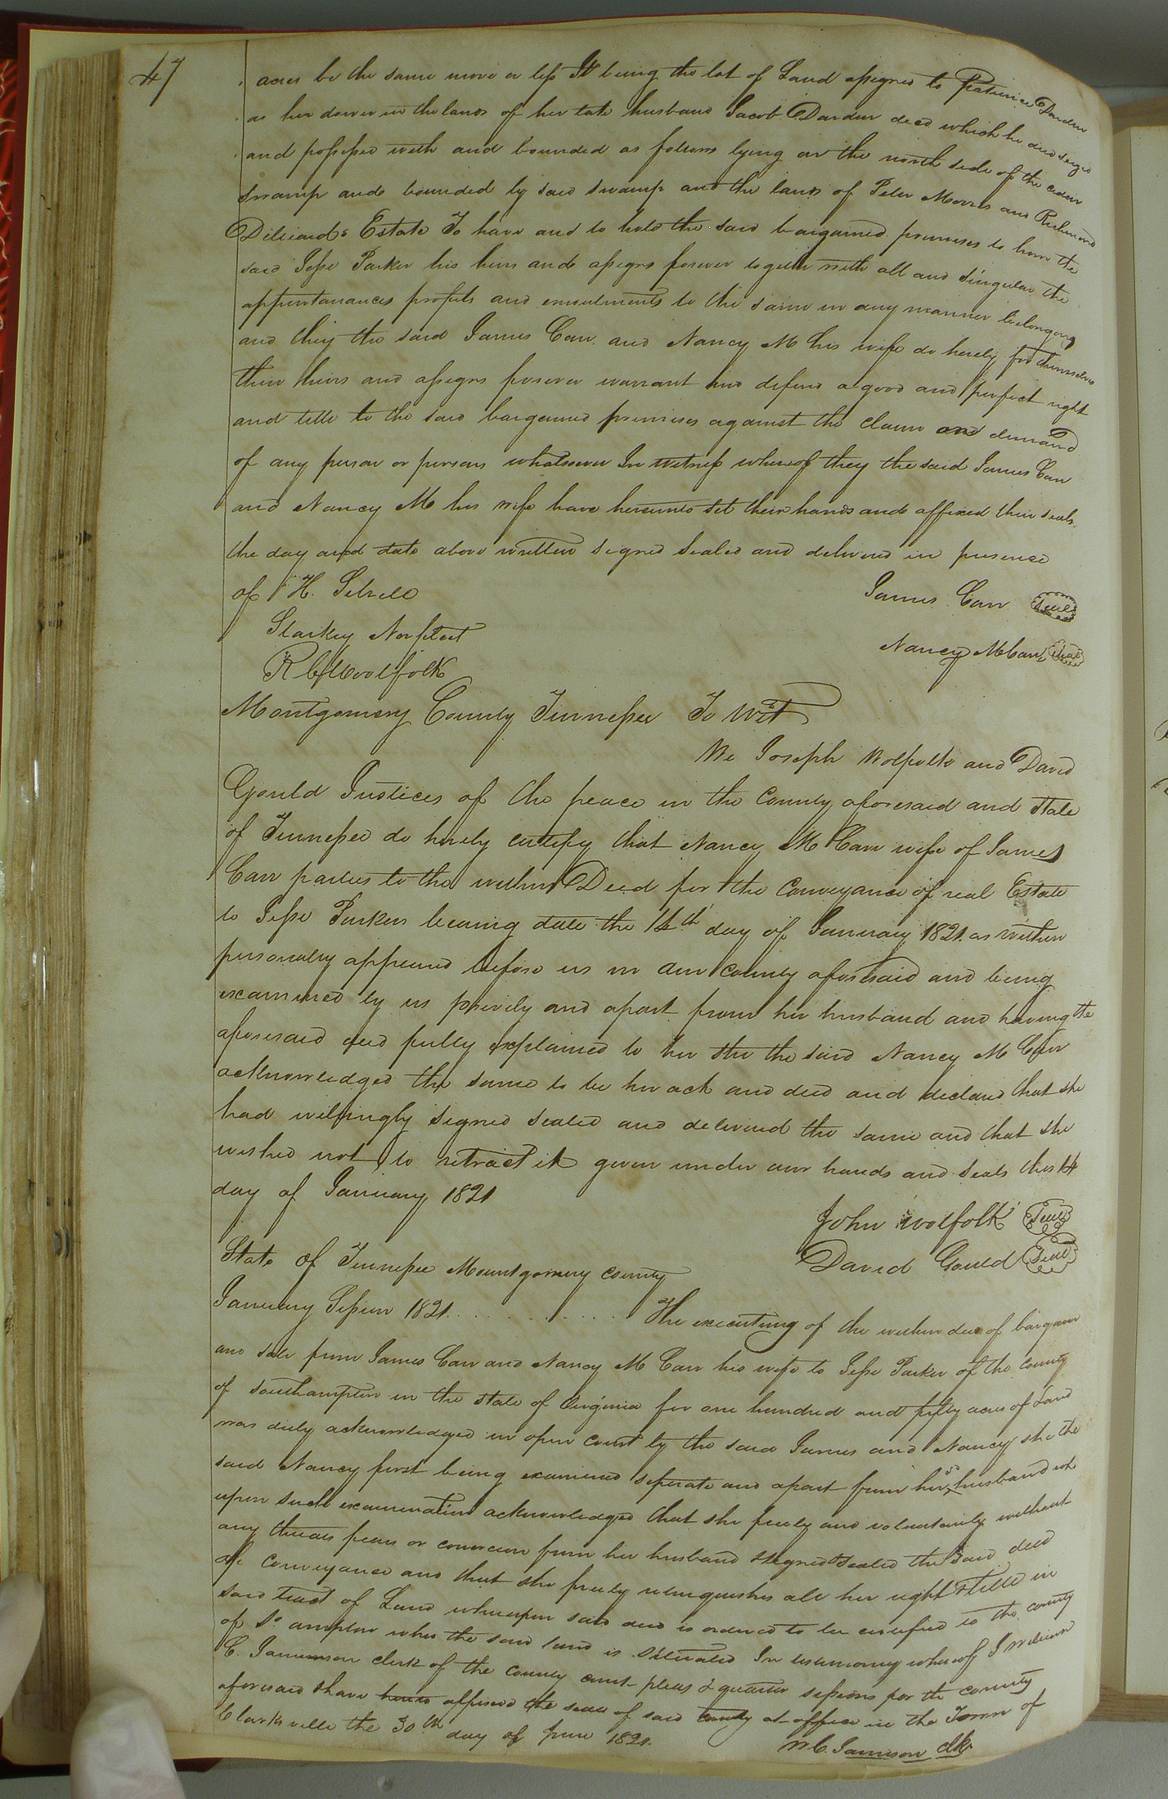 47
acres be the same more or less It being the lot of Land assigned to Patience Darden
as her dower in the lands of her late husband Jacob Darden decd which he died seized
and possessed with and bounded as follows lying on the north side of the
swamp and bounded by said swamp and the lands of Peter Morris and Richmond
Estate To have and to hold the said bargained premises to him the
said Jesse Parker his heirs and assigns forever together with all and singular the
appurtenances profits and emoluments to the same in any manner belonging
and they the said James Carr and Nancy M his wife do hereby for themselves
their heirs and assigns forever warrant and defend a good and perfect right
and title to the said bargained premises against the claim and demand
of any person or persons whatsoever In witness whereof they the said James Carr
and Nancy M his wife have hereunto set their hands and affixed their seals
the day and date above written signed sealed and delivered in presence
of H. James Carr Seal
Starkey Norfleet
Nancy M Carr Seal
Montgomery County Tennessee To wit
We Joseph and David
Gould Justices of the peace in the County aforesaid and State
of Tennessee do hereby certify that Nancy M Carr wife of James
Carr parties to the within Deed for the Conveyance of real Estate
to Jesse Parker bearing date the 14th day of January 1821 as within
personally appeared before us in our County aforesaid and being
examined by us privily and apart from her husband and having the
aforesaid deed fully explained to her she the said Nancy M Carr
acknowledged the same to be her act and deed and declared that she
had willingly signed sealed and delivered the same and that she
wished not to retract it given under our hands and seals this 14
day of January 1821
John Wolfolk Seal
David Gould Seal
State of Tennessee Mountgomery County
January Session 1821 . . . . . . . . The executiong of the within deed of bargain
and sale from James Carr and Nancy M Carr his wife to Jesse Parker of the county
of Southampton in the state of Virginia for one hundred and fifty acres of Land
was duly acknowledged in open court by the said James and Nancy she the
said Nancy first being examined seperate and apart from her husband
upon such examination acknowledged that she freely and voluntarily without
any threats fear or from her husband signed & sealed the said deed
of conveyance and that she freely relinquishes all her right & title in
said tract of Land whereupon said deed is ordered to be certified to the county
of So ampton where the said land is situated In testimony whereof I William
C. Jamerson clerk of the county court pleas & quarter sessions for the county
aforesaid have affixed the seal of said county at office in the Town of
Clarksville the 30th day of June 1821.
W.C. Jamison Clk